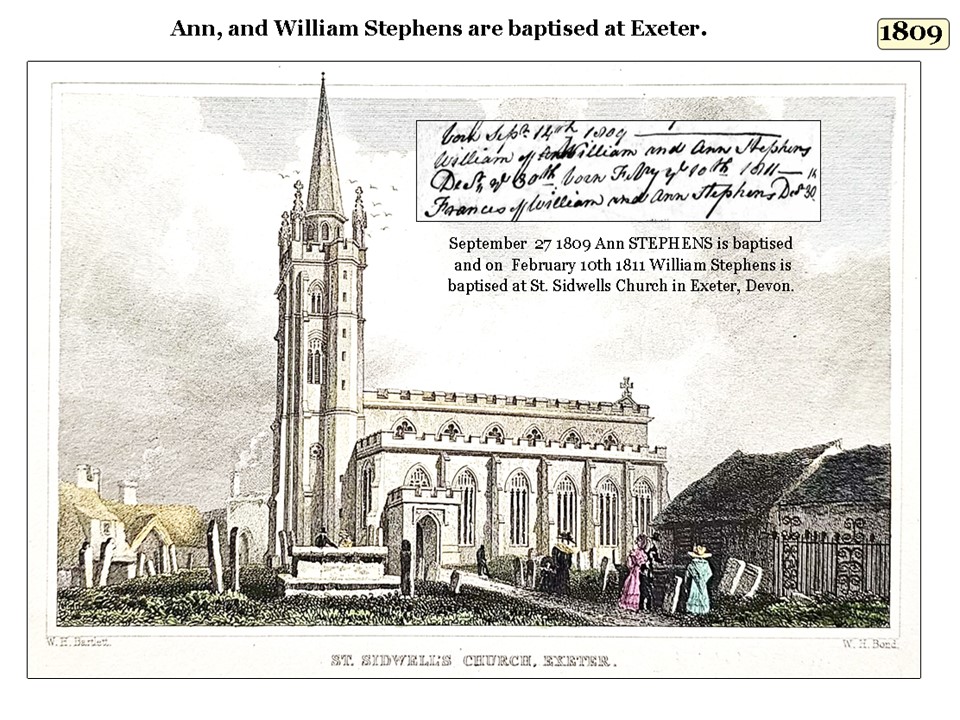 Ann, and William Stephens are baptised at Exeter.
1809
born Sept. 14th 1809
William of William and Ann Stephens
Decr. ye 30th. born Febry ye 10th 1811
Frances of William and Ann Stephens Decr 30.
September 27 1809 Ann STEPHENS is baptised
and on February 10th 1811 William Stephens is
baptised at St. Sidwells Church in Exeter, Devon.
W. H. Bartlett.
W. H. Bond.
ST. SIDWELL'S CHURCH, EXETER.